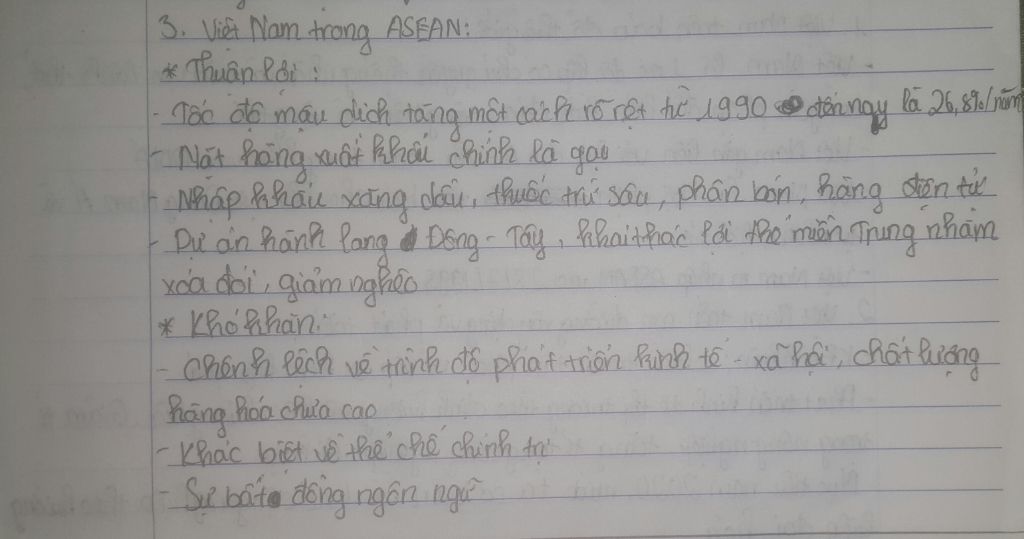 3. Việt Nam trong ASEAN:
* Thuận lợi:
- Tốc độ mậu dịch tăng một cách rõ rệt từ 1990 đến nay là 26,8%/năm
- Mặt hàng xuất khẩu chính là gạo
- Nhập khẩu xăng dầu, thuốc trừ sâu, phân bón, hàng điện tử
- Dự án hành lang Đông - Tây, khai thác lợi thế miền Trung nhằm
xóa đói, giảm nghèo
* Khó khăn:
- Chênh lệch về trình độ phát triển kinh tế - xã hội, chất lượng
hàng hóa chưa cao
- Khác biệt về thể chế chính trị
- Sự bất đồng ngôn ngữ